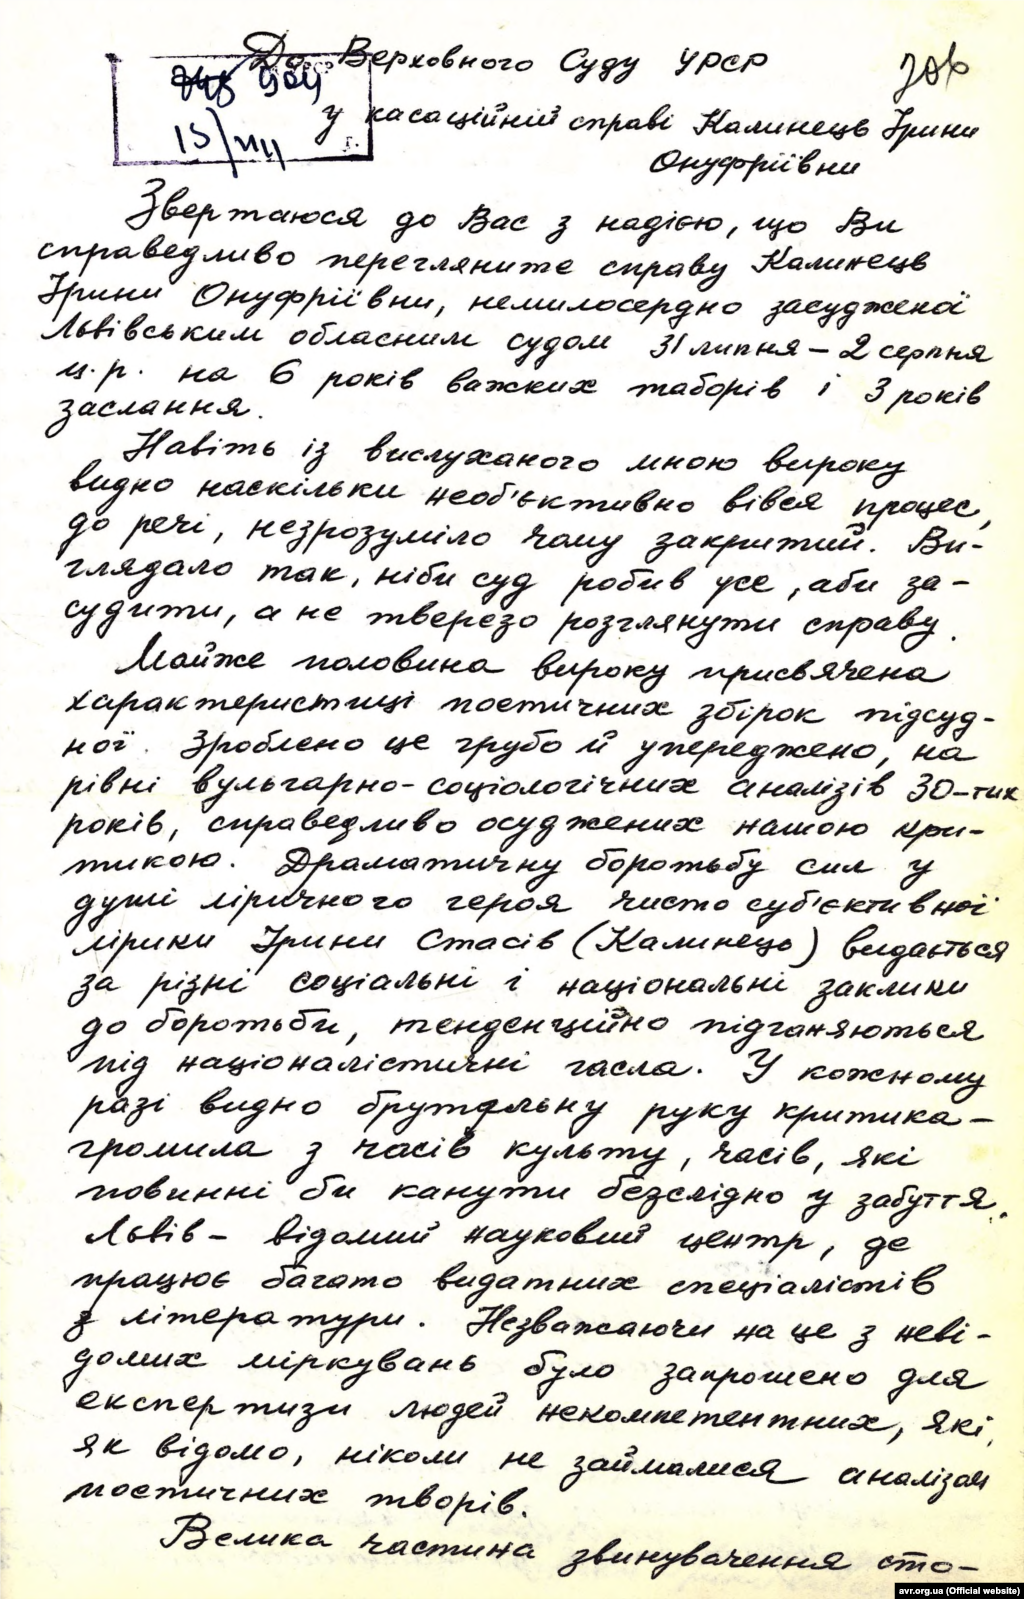 До Верховного Суду УРСР
706
15/VIII
у касаційній справі Калинець Ірини
Онуфріївни
Звертаюся до Вас з надією, що Ви
справедливо перегляните справу Калинець
Ірини Онуфріївни, немилосердно засудженої
Львівським обласним судом 31 липня – 2 серпня
ц.р. на 6 років важких таборів і 3 років
заслання.
Навіть із вислуханого мною вироку
видно наскільки необ'єктивно вівся процес,
до речі, незрозуміло чому закритий. Ви-
глядало так, ніби суд робив усе, аби за-
судити, а не тверезо розглянути справу.
Майже половина вироку присвячена
характеристиці поетичних збірок підсуд-
ної. Зроблено це грубо й упереджено, на
рівні вульгарно-соціологічних аналізів 30-тих
років, справедливо осуджених нашою кри-
тикою. Драматичну боротьбу сил у
душі ліричного героя чисто суб'єктивної
лірики Ірини Стасів (Калинець) видається
за різні соціальні і національні заклики
до боротьби, тенденційно підганяються
під націоналістичні гасла. У кожному
разі видно брутальну руку критика-
громила з часів культу, часів, які
повинні би канути безслідно у забуття.
Львів – відомий науковий центр, де
працює багато видатних спеціалістів
з літератури. Незважаючи на це з неві-
домих міркувань було запрошено для
експертизи людей некомпетентних, які,
як відомо, ніколи не займалися аналізом
поетичних творів.
Велика частина звинувачення сто-
avr.org.ua (Official website)